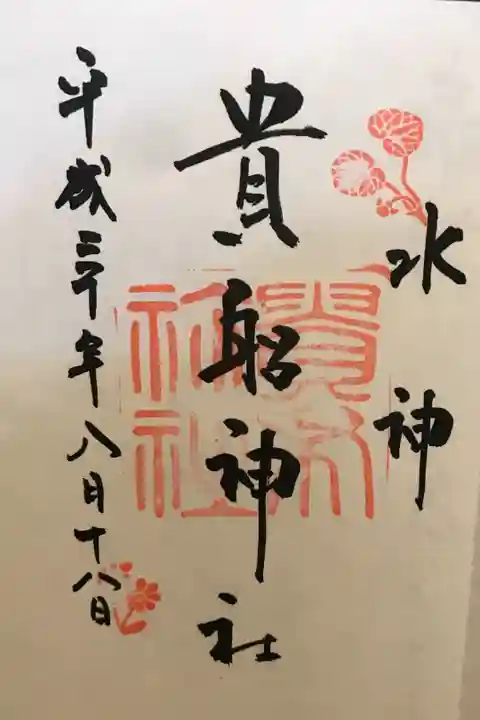 水神
貴船神社
平成三十年八月十八日